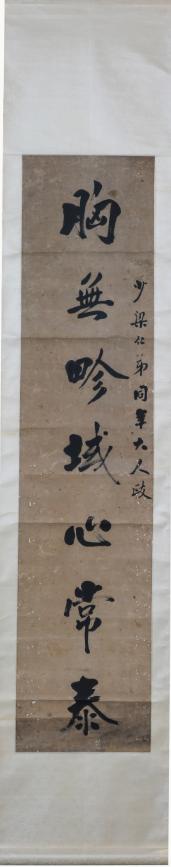 胸無畛域心常泰
少梁仁弟同年大人政